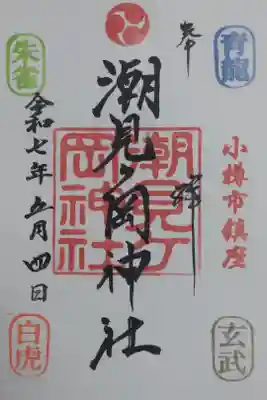 奉拝
青龍
小樽市鎮座
玄武
潮見ヶ岡神社
潮見丁
岡神社
朱雀
令和七年五月四日
白虎